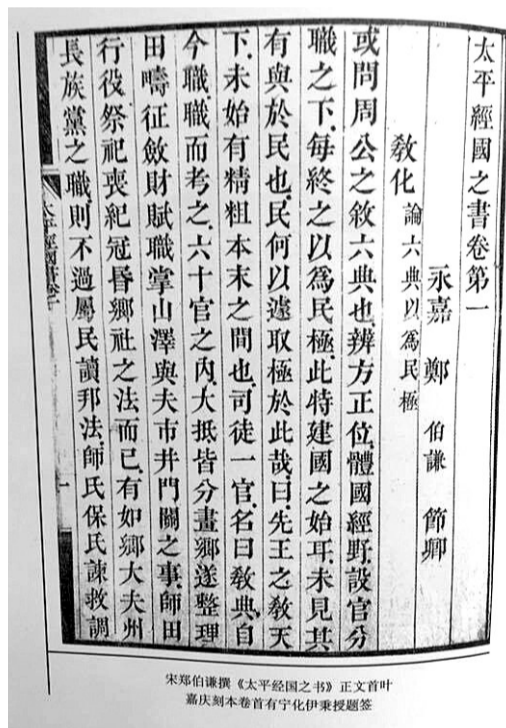 太平經國之書卷第一
永嘉 鄭 伯謙 節卿
敎化 論六典以爲民極
或問周公之敘六典也辨方正位體國經野設官分
職之下每終之以爲民極此特建國之始耳未見其
有與於民也民何以遽取極於此哉曰先王之敎天
下未始有精粗本末之間也司徒一官名曰敎典自
今職職而考之六十官之內大抵皆分畫鄉遂整理
田疇征斂財賦職掌山澤與夫市井門關之事師田
行役祭祀喪紀冠昏鄉社之法而已有如鄉大夫州
長族黨之職則不過屬民讀邦法師氏保氏諫救調
宋郑伯谦撰《太平经国之书》正文首叶
嘉庆刻本卷首有宁化伊秉授题签